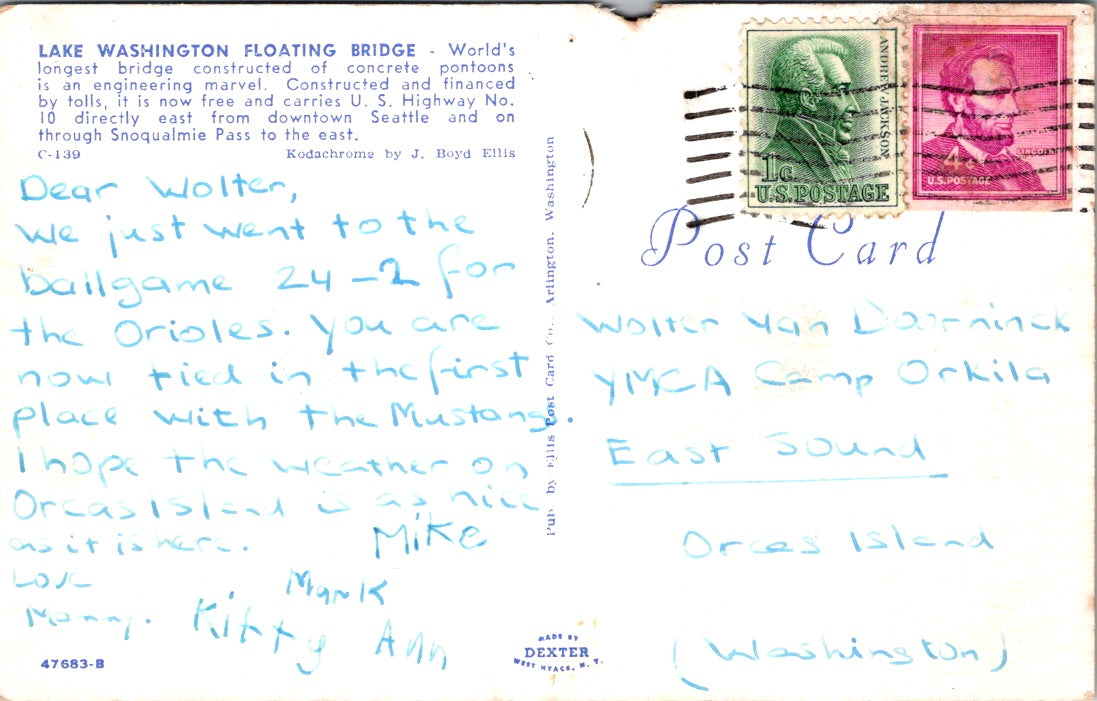 LAKE WASHINGTON FLOATING BRIDGE - World's
longest bridge constructed of concrete pontoons
is an engineering marvel. Constructed and financed
by tolls, it is now free and carries U. S. Highway No.
10 directly east from downtown Seattle and on
through Snoqualmie Pass to the east.
C-139 Kodachrome by J. Boyd Ellis
Dear Wolter,
we just went to the
ballgame 24-2 for
the Orioles. You are
now tied in the first
place with the Mustangs.
I hope the weather on
Orcas Island is as nice
as it is here.
Mike
Love
Mark
Mommy.
Kitty Ann
47683-B
Pub. by Ellis Post Card Co., Arlington, Washington
MADE BY
DEXTER
WEST NYACK, N. Y.
ANDREW JACKSON
1c
U.S. POSTAGE
LINCOLN
4c
U.S. POSTAGE
Post Card
Wolter Van
YMCA Camp Orkila
East Sound
Orcas Island
(Washington)